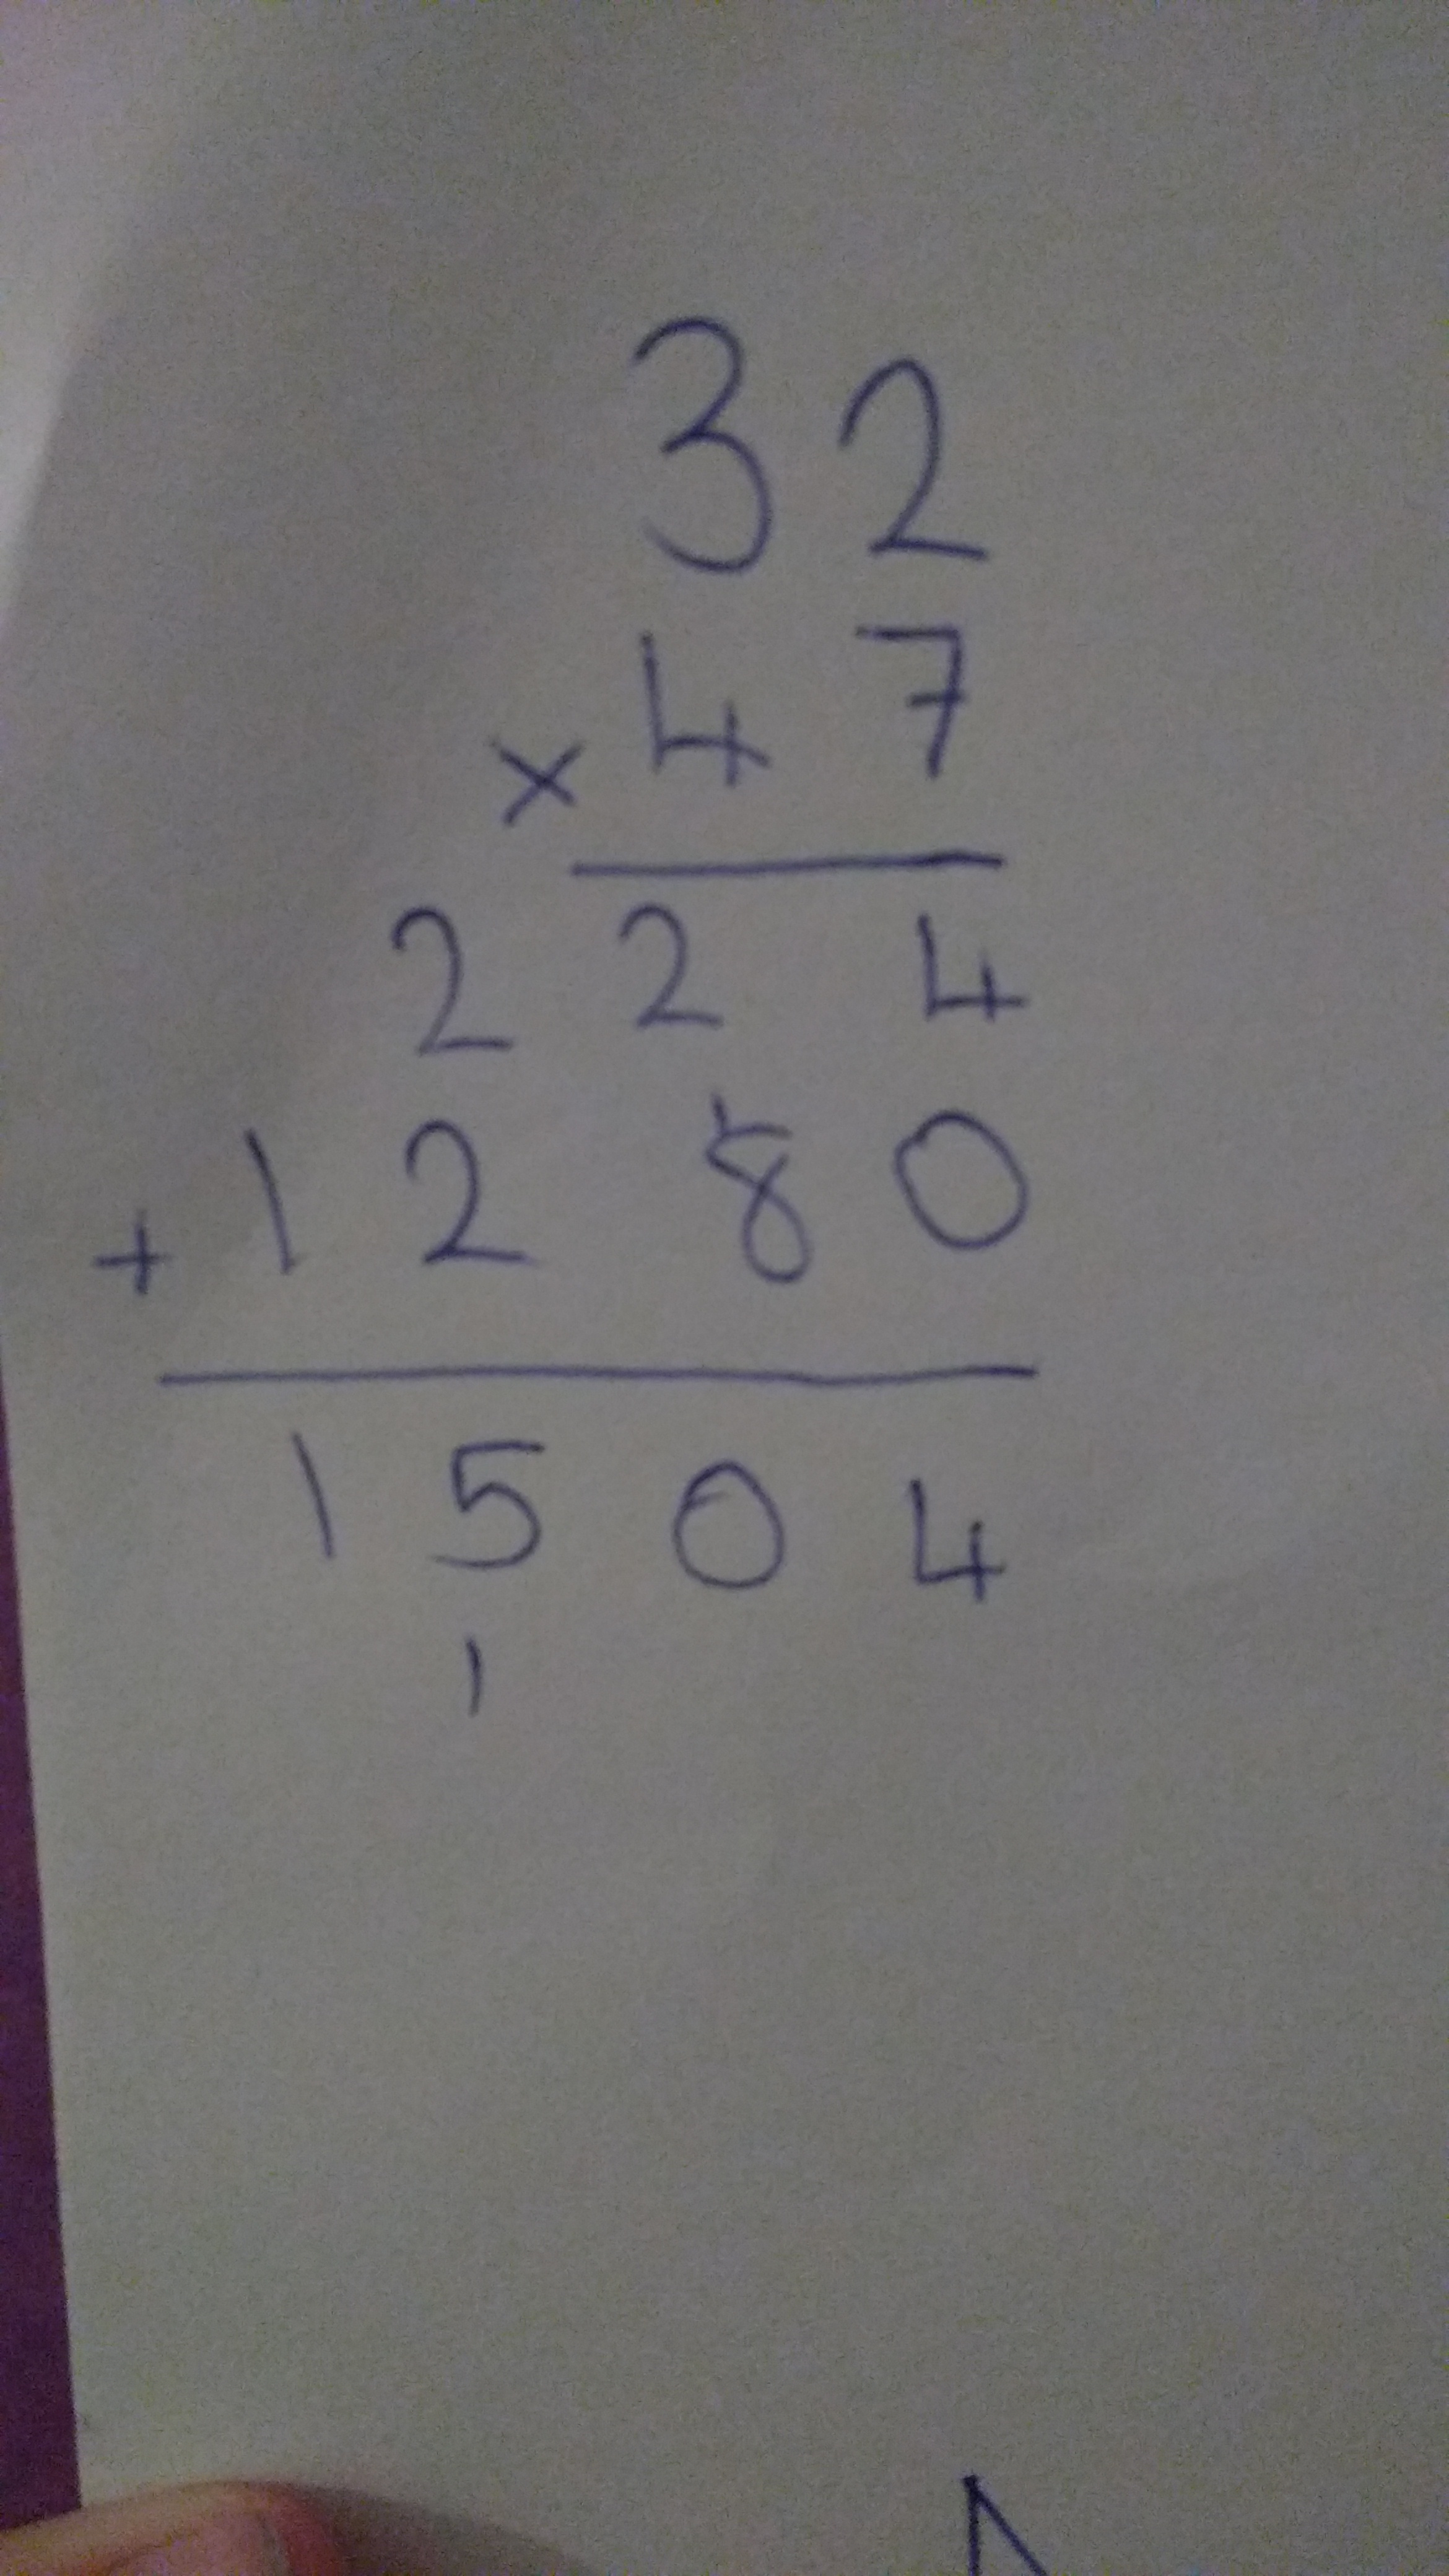 32
× 47
224
+ 1280
1504
1